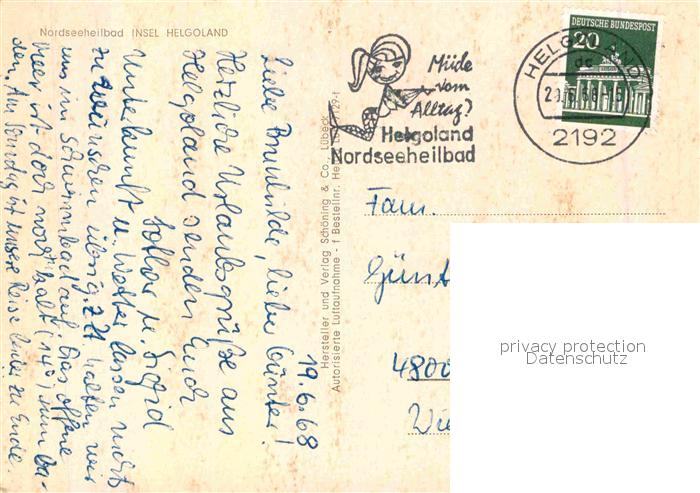 Nordseeheilbad INSEL HELGOLAND
19.6.68
Liebe Brunhilde, lieber Günter!
Herzliche Urlaubsgrüße aus
Helgoland senden Euch
Lothar u. Sigrid
Unterkunft u. Wetter lassen nichts
zu wünschen übrig. Z.Zt. halten wir
uns im Schwimmbad auf. Das offene
Meer ist doch noch kalt (14°) zum Ba-
den. Am Sonntag ist unsere Reise leider zu Ende.
Hersteller und Verlag Schöning & Co., Lübeck
Autorisierte Luftaufnahme - f Bestellnr.
Müde
vom
Alltag?
Helgoland
Nordseeheilbad
DEUTSCHE BUNDESPOST
20
HELGOLAND
2192
Fam.
Günt
4800
Wie
privacy protection
Datenschutz